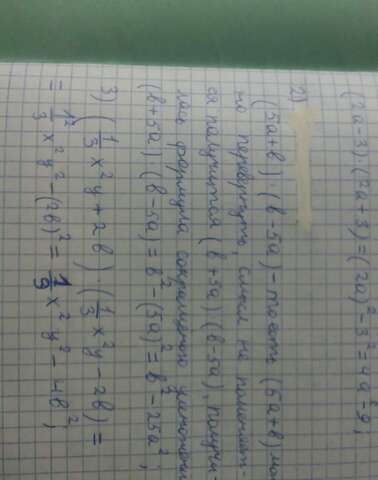 (2a-3)·(2a+3)=(2a)²-3²=4a²-9;
2)
(5a+b)·(b-5a)-тоесть (5a+b) мож
но перевернуть, смысл не поменяет-
ся получится (b+5a)(b-5a), получи-
лась формула сокращеного умножения
(b+5a)(b-5a)=b²-(5a)²=b²-25a²;
3) (1/3 x²y+2b)·(1/3 x²y-2b)=
= 1²/3 x²y²-(2b)²= 1/9 x²y²-4b²;